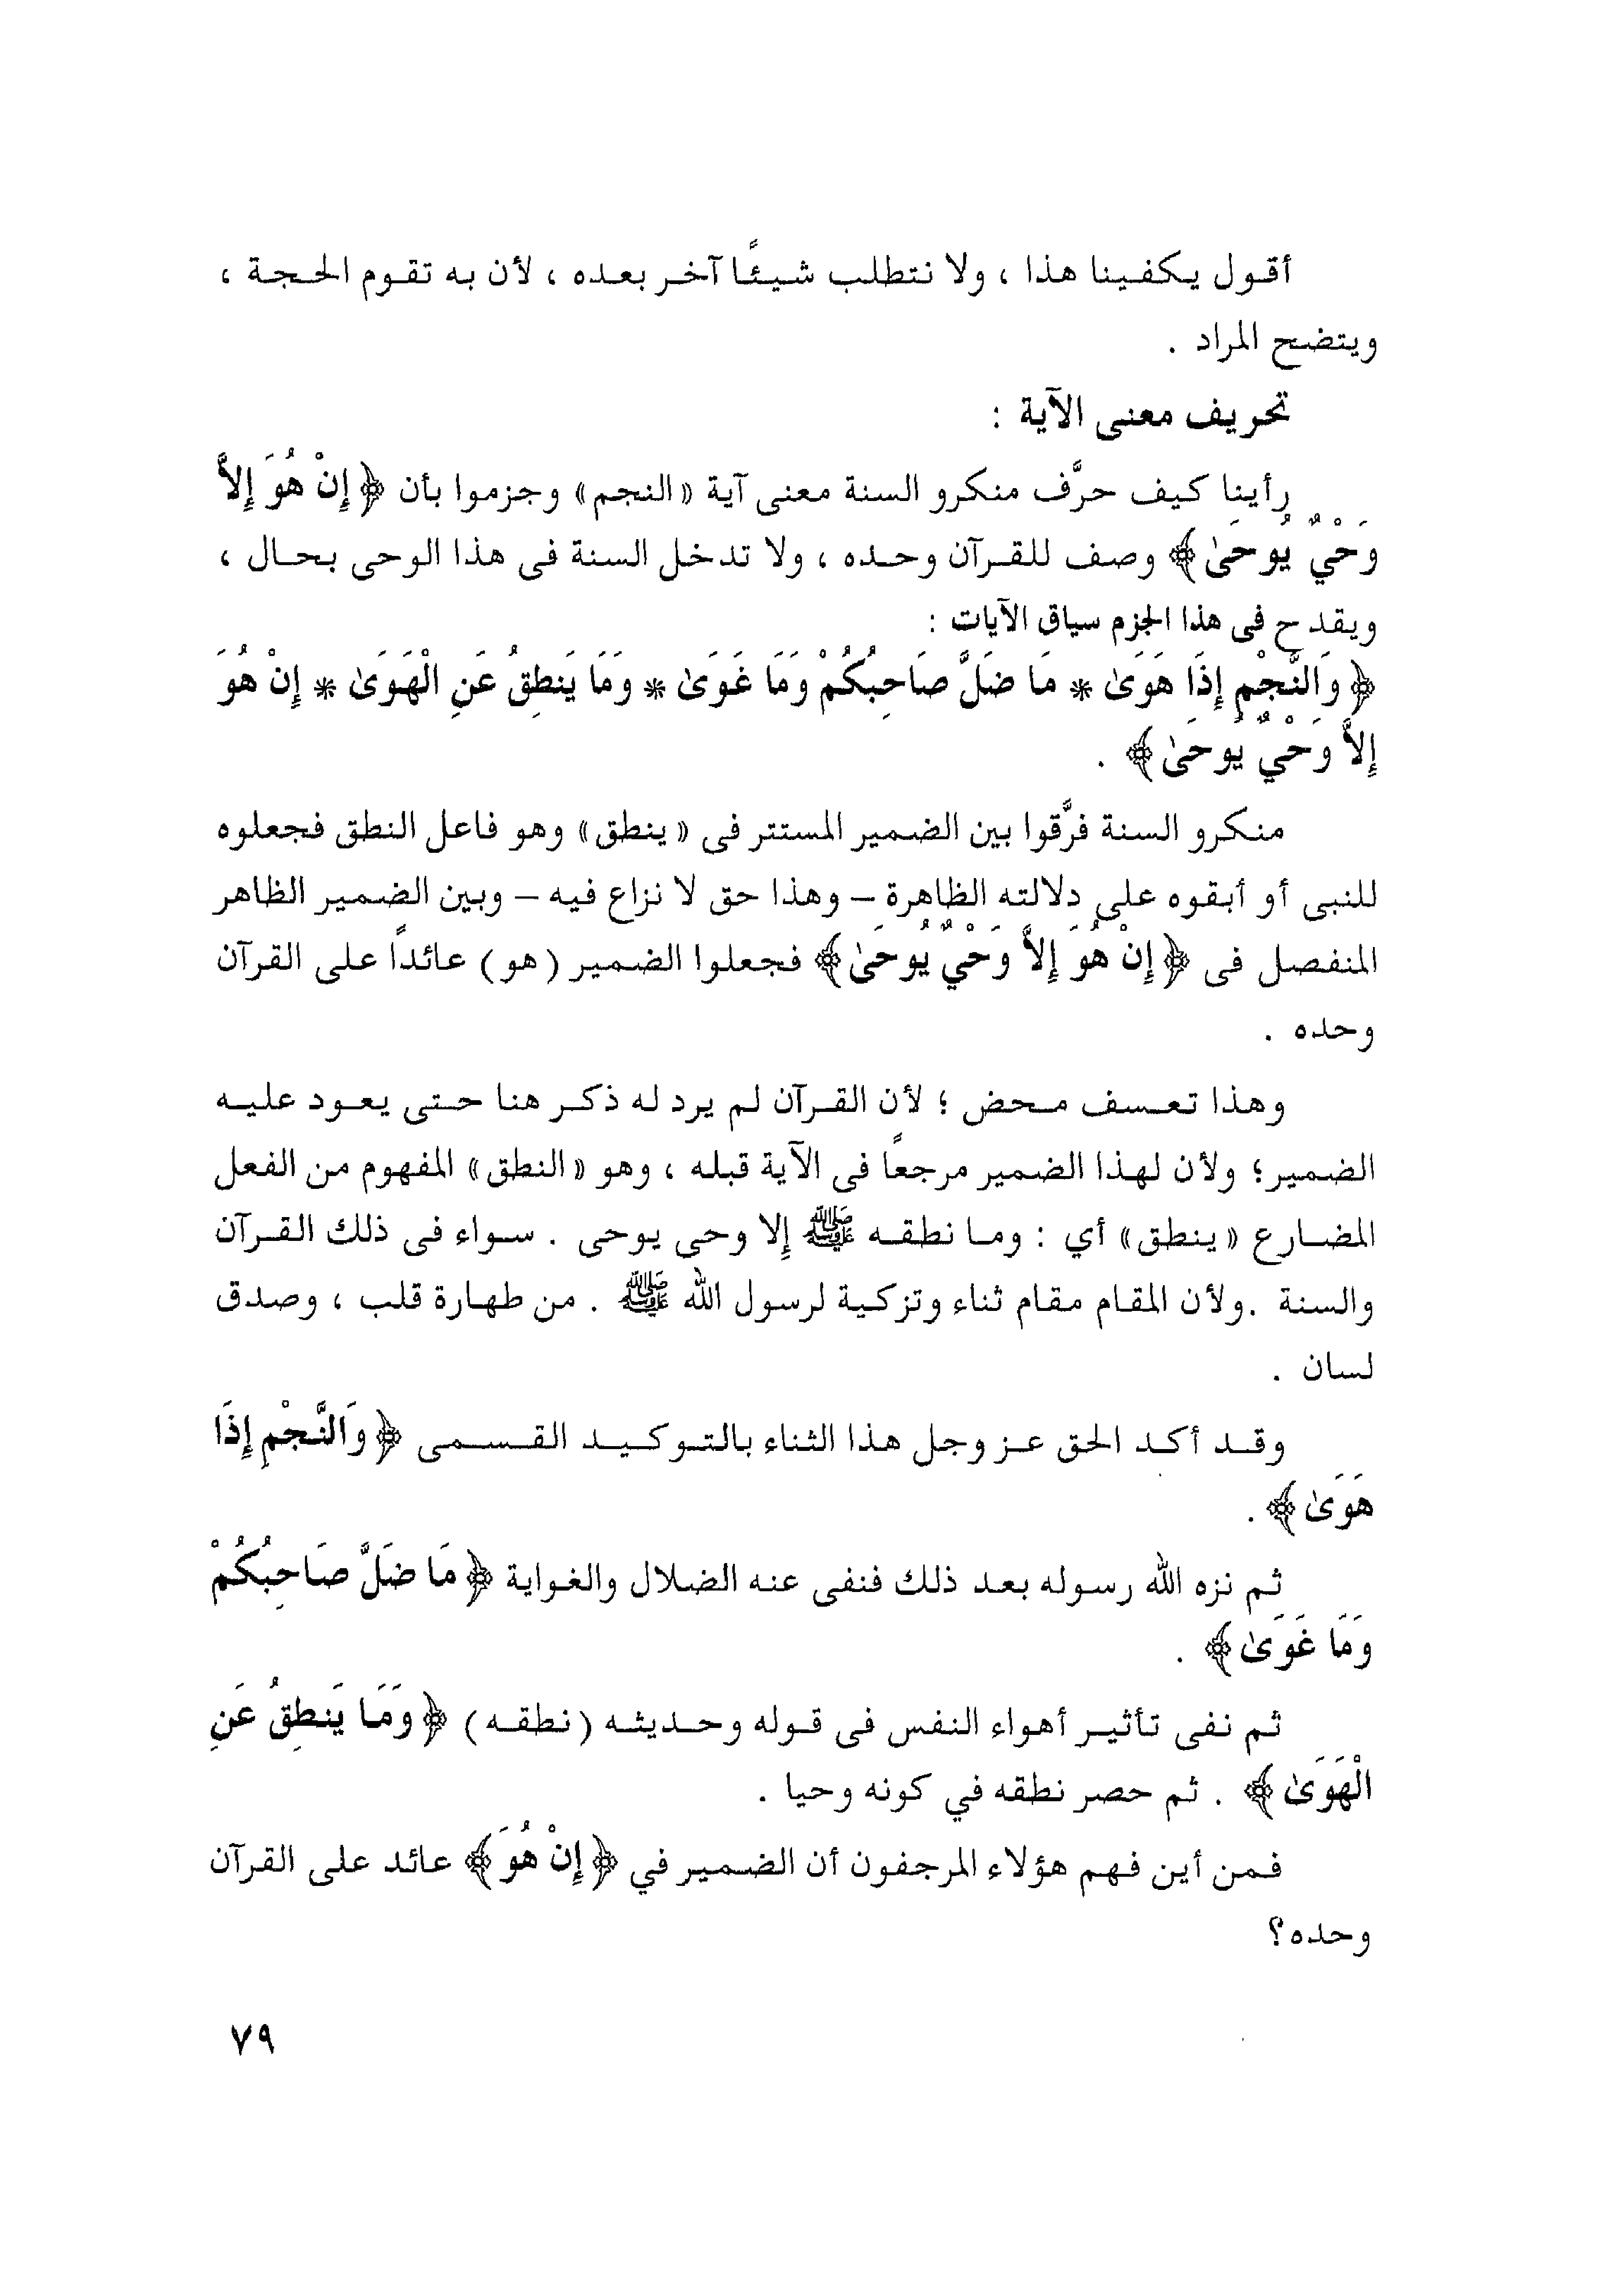 أقول يكفينا هذا ، ولا نتطلب شيئًا آخر بعده ، لأن به تقوم الحجة ،
ويتضح المراد .
تحريف معنى الآية :
رأينا كيف حرَّف منكرو السنة معنى آية « النجم » وجزموا بأن ﴿ إِنْ هُوَ إِلاَّ
وَحْيٌ يُوحَىٰ ﴾ وصف للقرآن وحده ، ولا تدخل السنة فى هذا الوحى بحال ،
ويقدح فى هذا الجزم سياق الآيات :
﴿ وَالنَّجْمِ إِذَا هَوَىٰ * مَا ضَلَّ صَاحِبُكُمْ وَمَا غَوَىٰ * وَمَا يَنطِقُ عَنِ الْهَوَىٰ * إِنْ هُوَ
إِلاَّ وَحْيٌ يُوحَىٰ ﴾ .
منكرو السنة فرَّقوا بين الضمير المستتر فى « ينطق » وهو فاعل النطق فجعلوه
للنبى أو أبقوه على دلالته الظاهرة – وهذا حق لا نزاع فيه – وبين الضمير الظاهر
المنفصل فى ﴿ إِنْ هُوَ إِلاَّ وَحْيٌ يُوحَىٰ ﴾ فجعلوا الضمير ( هو ) عائداً على القرآن
وحده .
وهذا تعسف محض ؛ لأن القرآن لم يرد له ذكر هنا حتى يعود عليه
الضمير؛ ولأن لهذا الضمير مرجعاً فى الآية قبله ، وهو « النطق » المفهوم من الفعل
المضارع « ينطق » أي : وما نطقه ﷺ إلا وحى يوحى . سواء فى ذلك القرآن
والسنة .ولأن المقام مقام ثناء وتزكية لرسول الله ﷺ . من طهارة قلب ، وصدق
لسان .
وقد أكد الحق عز وجل هذا الثناء بالتوكيد القسمى ﴿ وَالنَّجْمِ إِذَا
هَوَىٰ ﴾ .
ثم نزه الله رسوله بعد ذلك فنفى عنه الضلال والغواية ﴿ مَا ضَلَّ صَاحِبُكُمْ
وَمَا غَوَىٰ ﴾ .
ثم نفى تأثير أهواء النفس فى قوله وحديثه ( نطقه ) ﴿ وَمَا يَنطِقُ عَنِ
الْهَوَىٰ ﴾ . ثم حصر نطقه في كونه وحيا .
فمن أين فهم هؤلاء المرجفون أن الضمير في ﴿ إِنْ هُوَ ﴾ عائد على القرآن
وحده؟
٧٩